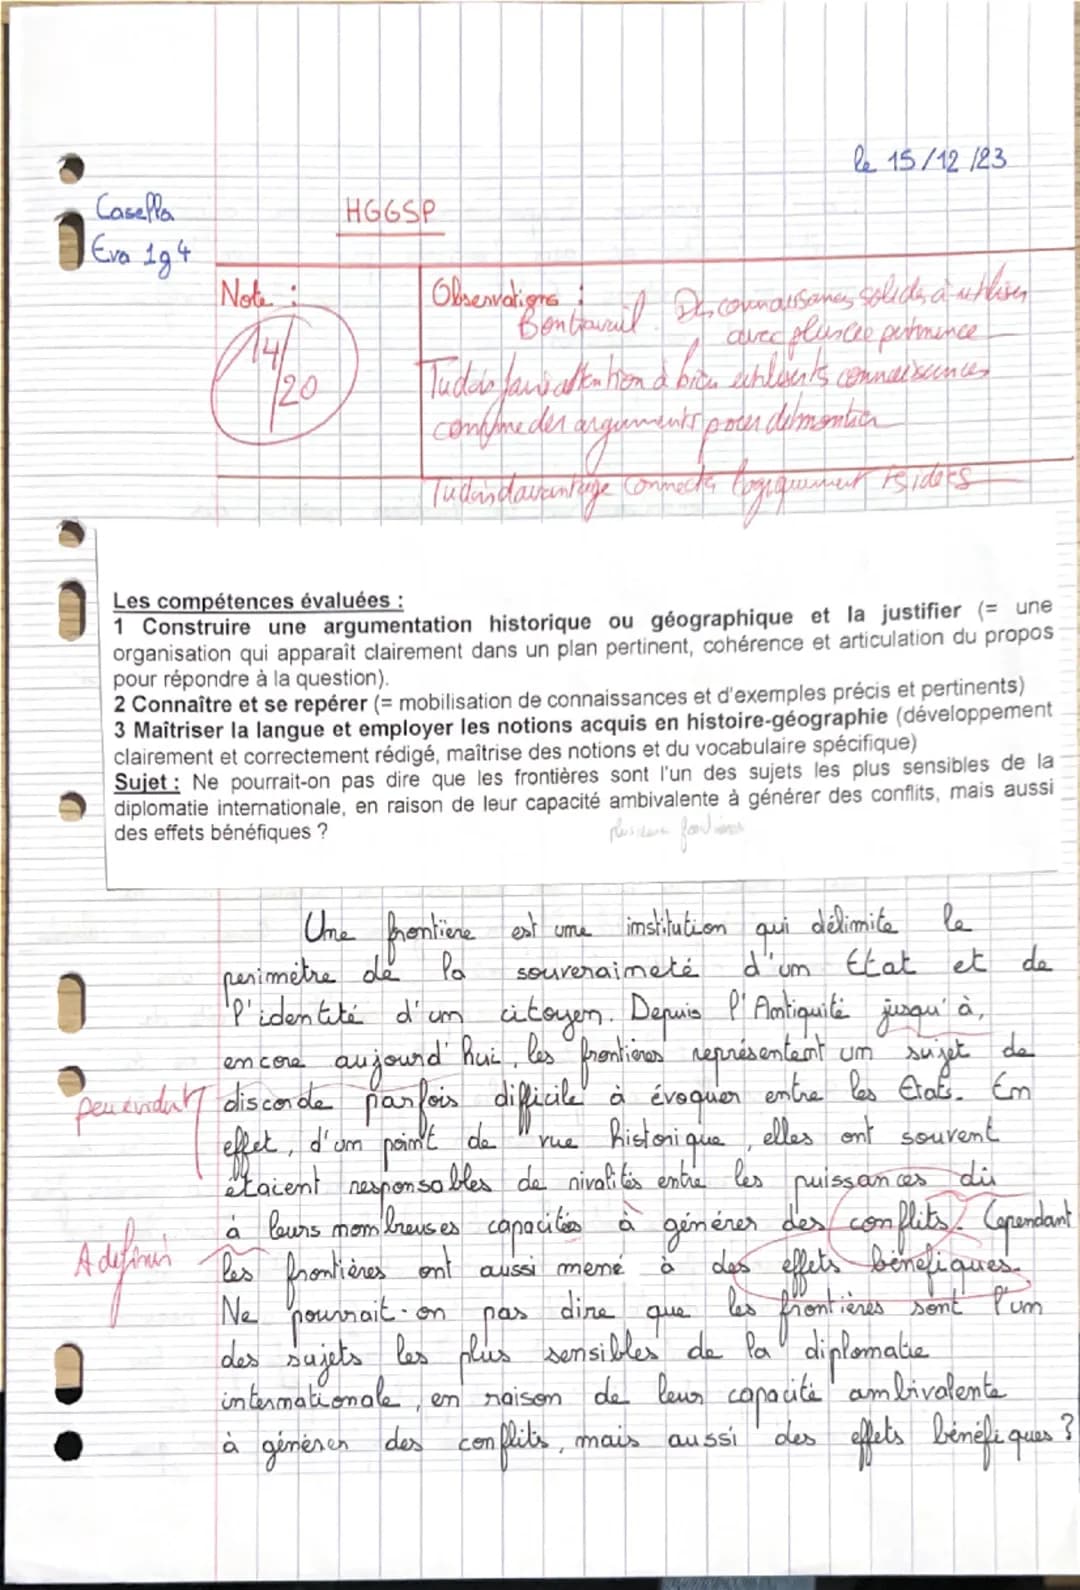 le 15/12/23
Casella
Eva 1g4
HGGSP
Note :
14/20
Observations :
Bon travail. Des connaissances solides à utiliser
avec plus de pertinence
Tu dois faire attention à bien utiliser ts connaissances
comme des arguments pour démontrer
Tu dois davantage connecter logiquement ts idées
Les compétences évaluées :
1 Construire une argumentation historique ou géographique et la justifier (= une
organisation qui apparaît clairement dans un plan pertinent, cohérence et articulation du propos
pour répondre à la question).
2 Connaître et se repérer (= mobilisation de connaissances et d'exemples précis et pertinents)
3 Maîtriser la langue et employer les notions acquis en histoire-géographie (développement
clairement et correctement rédigé, maîtrise des notions et du vocabulaire spécifique)
Sujet : Ne pourrait-on pas dire que les frontières sont l'un des sujets les plus sensibles de la
diplomatie internationale, en raison de leur capacité ambivalente à générer des conflits, mais aussi
des effets bénéfiques ?
Une frontière est une institution qui délimite le
perimètre de la souveraineté d'un Etat et de
l'identité d'un citoyen. Depuis l'Antiquité jusqu'à,
encore aujourd'hui, les frontières représentent un sujet de
peu évident
discorde parfois difficile à évoquer entre les Etats. En
effet, d'un point de vue historique, elles ont souvent
étaient responsables de rivalités entre les puissances dû
à leurs nombreuses capacités à générer des conflits. Cependant
A définir
les frontières ont aussi mené à des effets bénéfiques.
Ne pourrait-on pas dire que les frontières sont l'un
des sujets les plus sensibles de la diplomatie
internationale, en raison de leur capacité ambivalente
à générer des conflits, mais aussi des effets bénéfiques ?